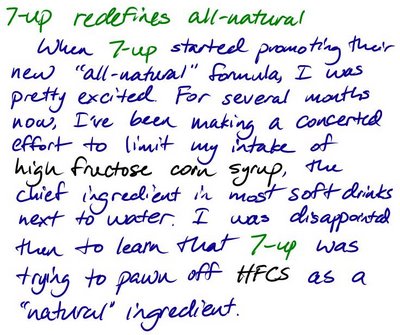 7-up redefines all-natural
When 7-up started promoting their
new "all-natural" formula, I was
pretty excited. For several months
now, I've been making a concerted
effort to limit my intake of
high fructose corn syrup, the
chief ingredient in most soft drinks
next to water. I was disappointed
then to learn that 7-up was
trying to pawn off HFCS as a
"natural" ingredient.